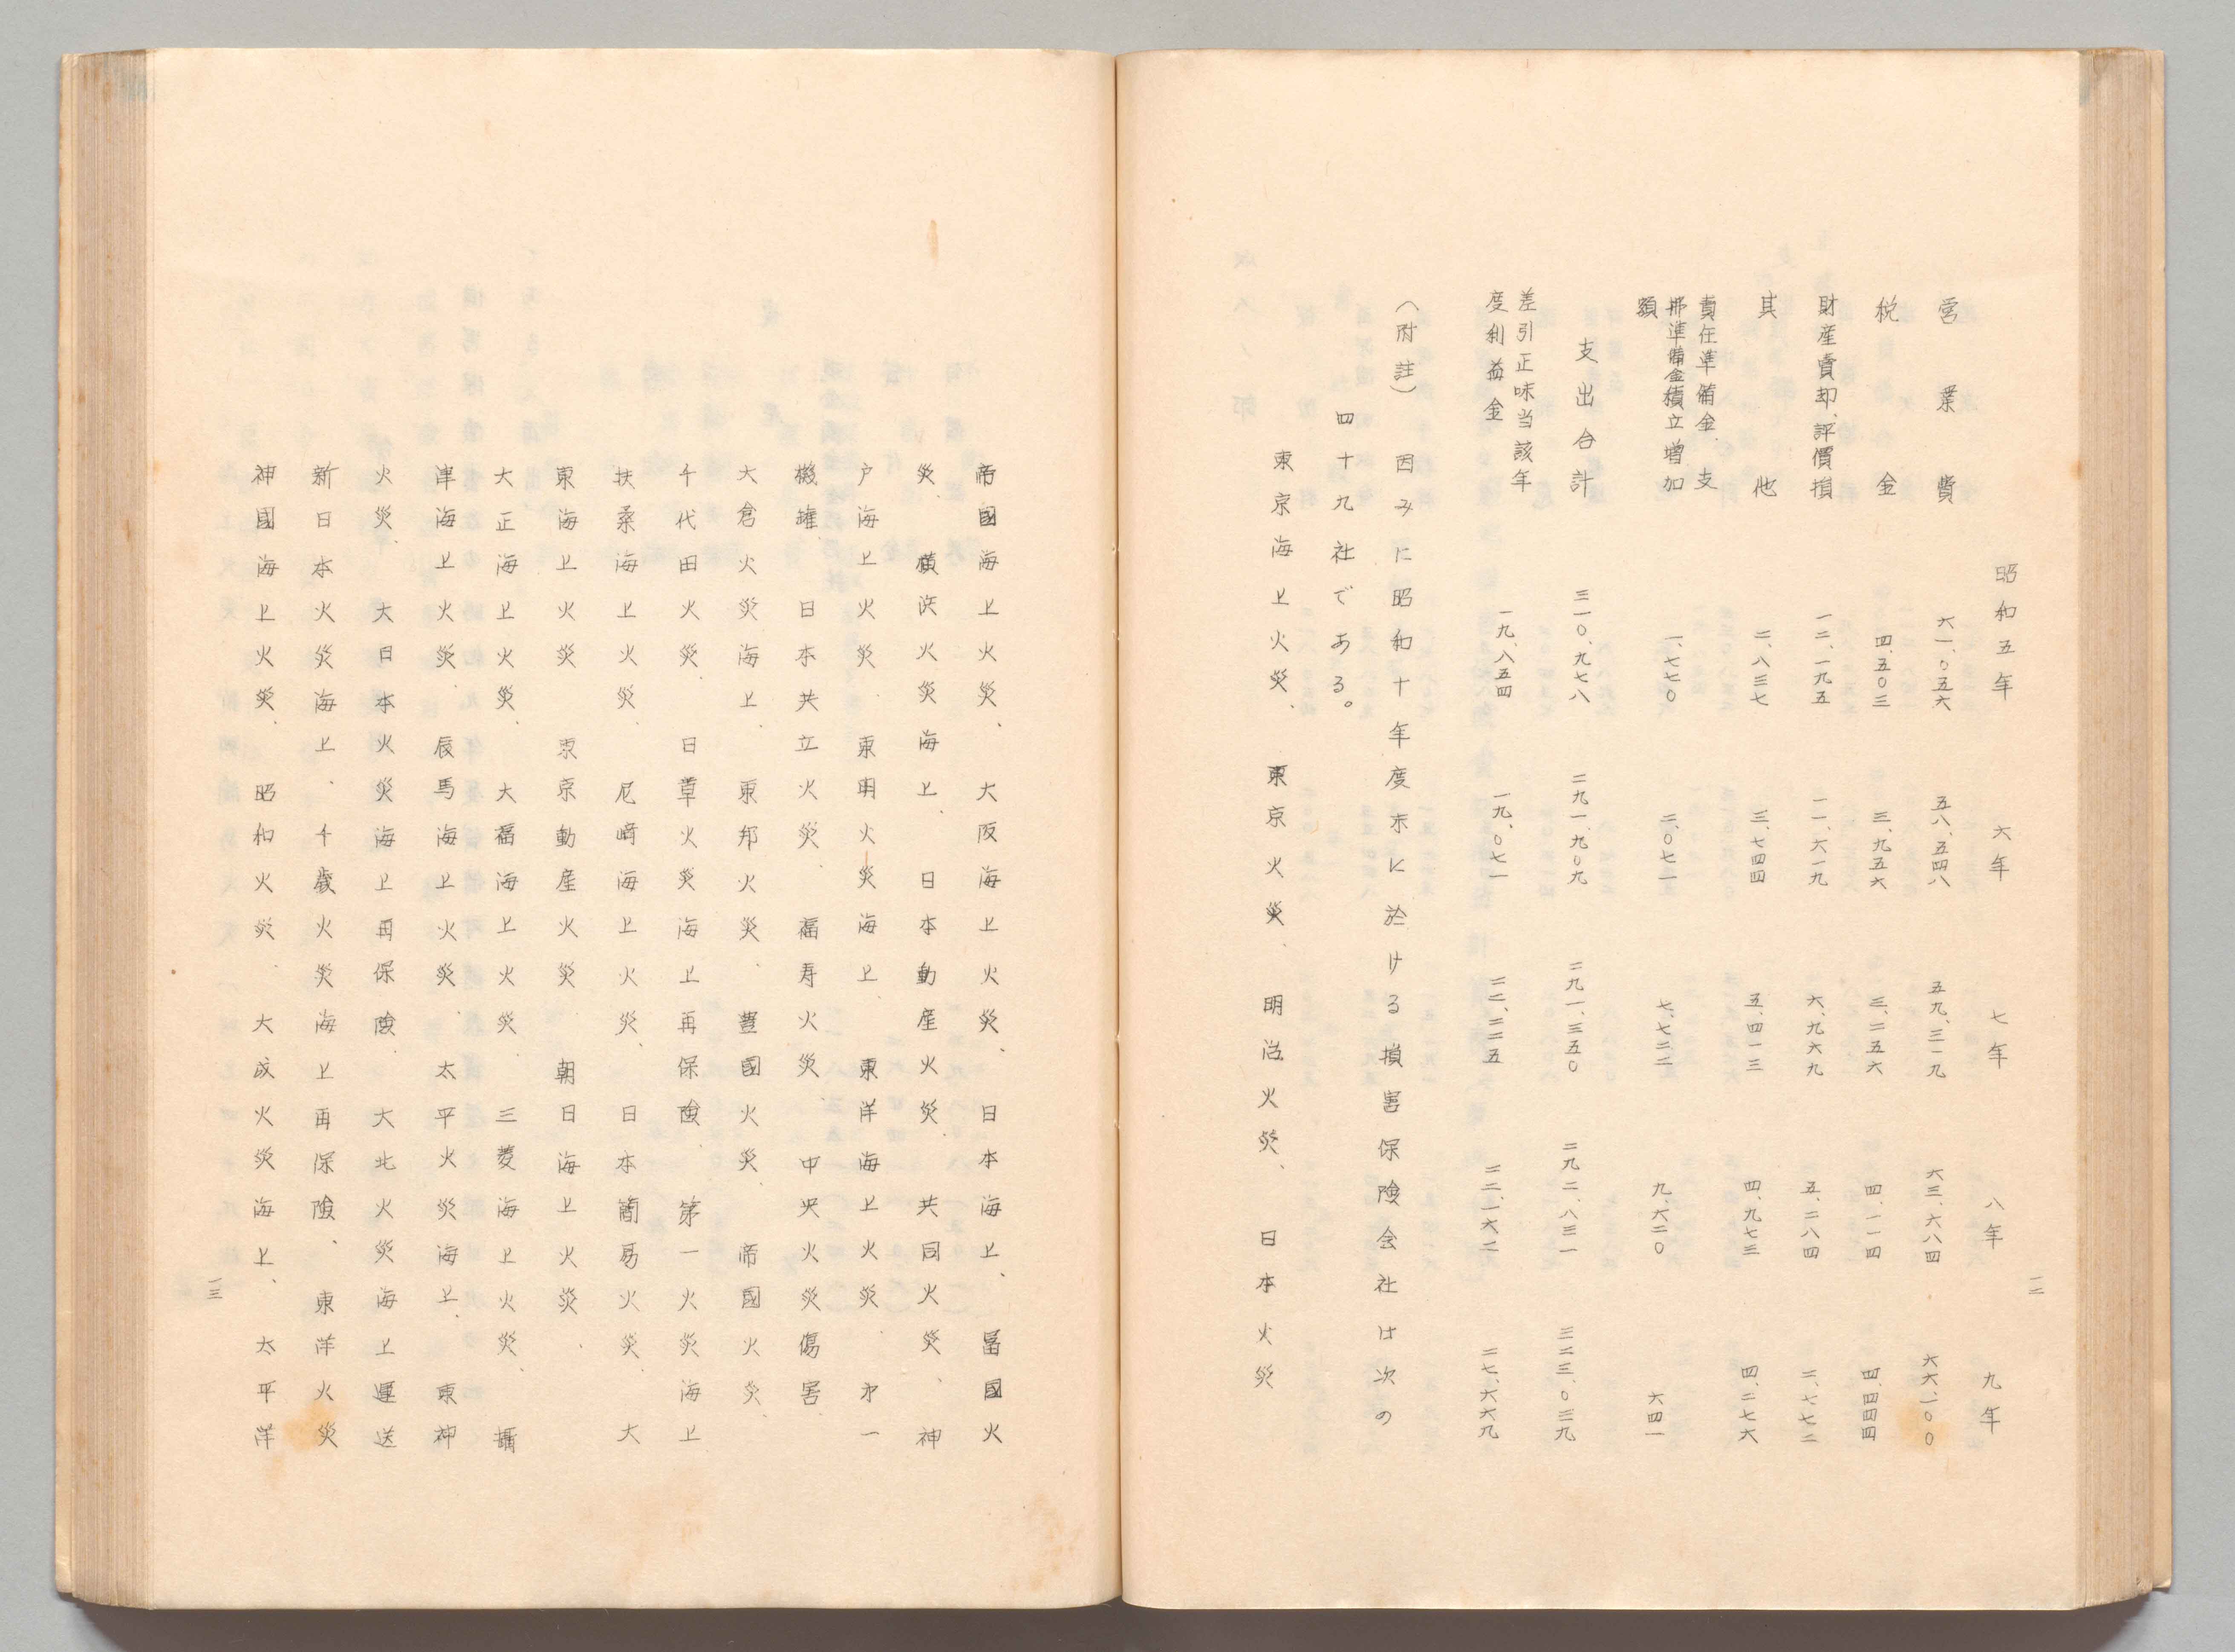 一二
昭和五年 六年 七年 八年 九年
営業費 六一、〇五六 五八、五四八 五九、三一九 六三、六八四 六六、一〇〇
税金 四、五〇三 三、九五六 三、二五六 四、一一四 四、四四四
財産賣却、評價損 一二、一九五 一一、六一九 六、九六九 五、二八四 二、七七二
其他 二、八三七 三、七四四 五、四一三 四、九七三 四、二七六
責任準備金、支
拂準備金積立増加
額 一、七七〇 二、〇七一 七、七二二 九、六二〇 六四一
支出合計 三一〇、九七八 二九一、九〇九 二九一、三五〇 二九二、八三一 三二三、〇三九
差引正味当該年
度利益金 一九、八五四 一九、〇七一 二二、二二五 二二、一六二 二七、六六九
(附註) 因みに昭和十年度末に於ける損害保険会社は次の
四十九社である。
東京海上火災、 東京火災、 明治火災、 日本火災
帝國海上火災、 大阪海上火災、 日本海上、 冨國火
災、 横浜火災海上、 日本動産火災、 共同火災、 神
戸海上火災、 東明火災海上、 東洋海上火災、 才一
機罐、 日本共立火災、 福寿火災、 中央火災傷害
大倉火災海上、 東邦火災、 豊國火災、 帝國火災、
千代田火災、 日章火災海上再保険、 第一火災海上
扶桑海上火災、 尼崎海上火災、 日本簡易火災、 大
東海上火災、 東京動産火災、 朝日海上火災、
大正海上火災、 大福海上火災、 三菱海上火災、 攝
津海上火災、 辰馬海上火災、 太平火災海上、 東神
火災、 大日本火災海上再保険、 大北火災海上運送
新日本火災海上、 千歳火災海上再保険、 東洋火災
神國海上火災、 昭和火災、 大成火災海上、 太平洋
一三